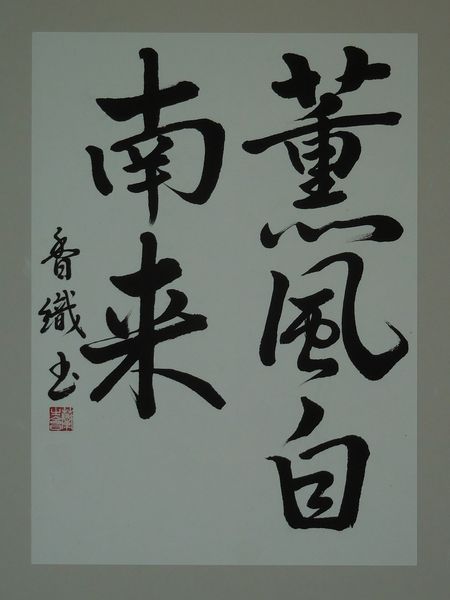 薫風白
南来
香織书